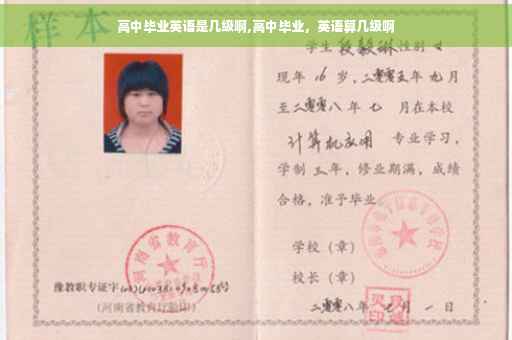 高中毕业英语是几级啊,高中毕业，英语算几级啊
样本
学生 段毅琳 性别 女
现年 16 岁，二零零五年 九 月
至二零零八年 七 月在本校
计算机应用 专业学习，
学制 三 年，修业期满，成绩
合格，准予毕业
学校（章）
校长（章）
二零零八年 七 月 一 日
河南省教育厅
豫教职专证字
（河南省教育厅验印）